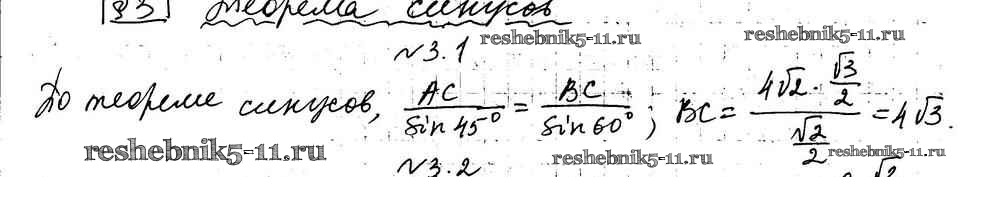 §3 Теорема синусов
№3.1 reshebnik5-11.ru reshebnik5-11.ru
По теореме синусов, AC/sin45° = BC/sin60°; BC = (4√2 · √3/2)/(√2/2) = 4√3.
reshebnik5-11.ru №3.2 reshebnik5-11.ru reshebnik5-11.ru